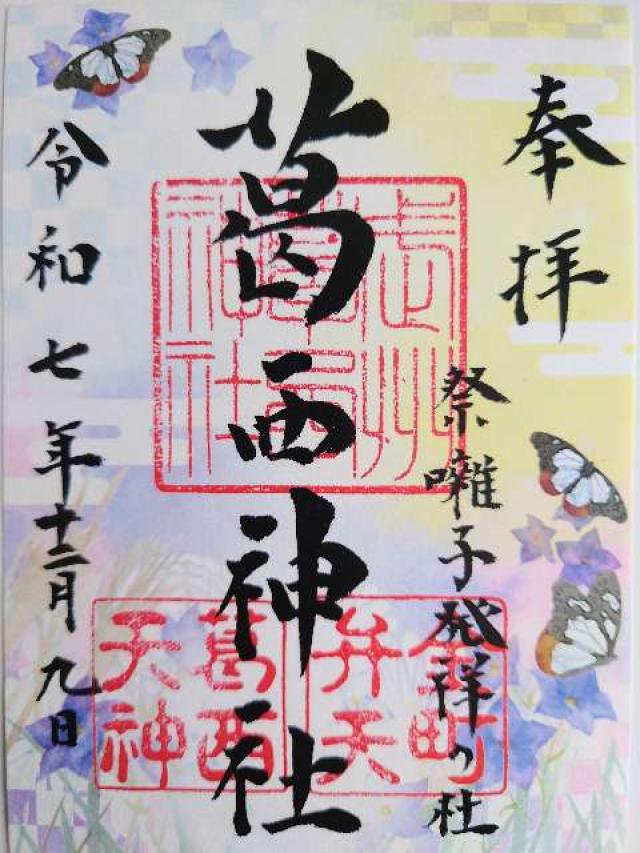 奉拝
祭囃子発祥の社
葛西神社
令和七年十二月九日
金町
弁天
葛西
天神